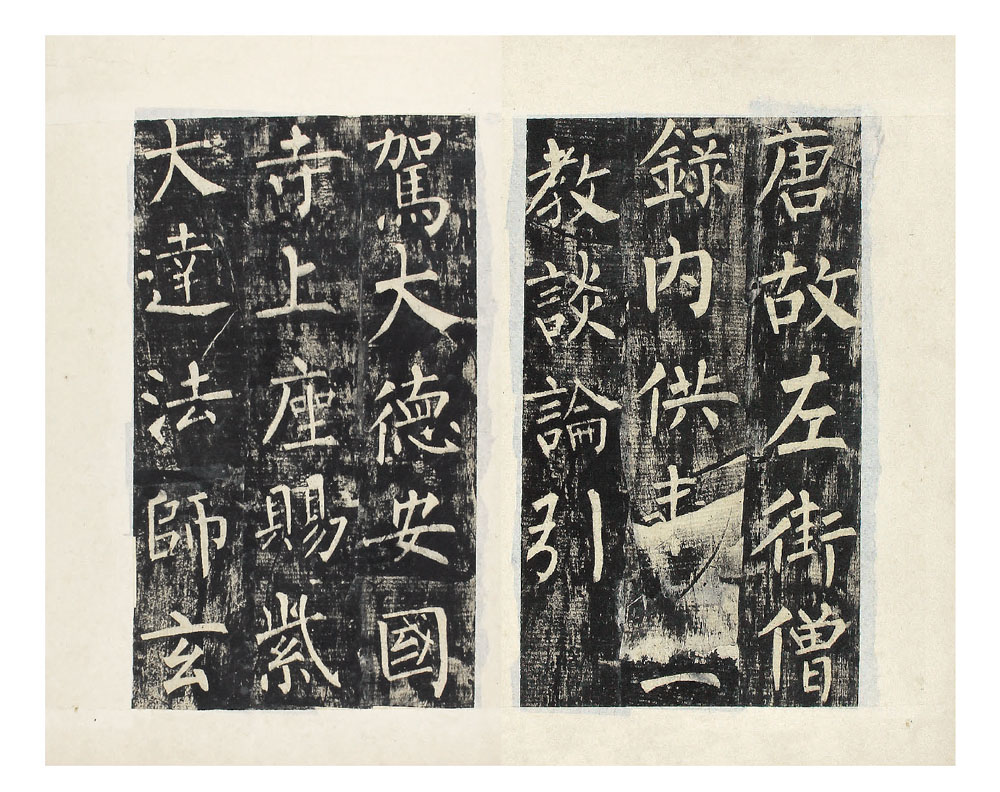 唐故左街僧
錄內供
教談論引
駕大德安國
寺上座賜紫
大達法師玄